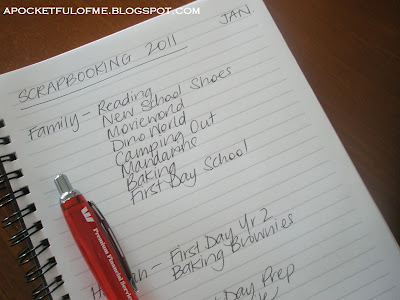 APOCKETFULOFME.BLOGSPOT.COM
SCRAPBOOKING 2011
JAN.
Family - Reading
New School Shoes
Movieworld
Dino World
Camping Out
Mandarine
Baking
First Day School
First Day Yr 2
Baking Brownies
Day Prep
Premium Financial Services